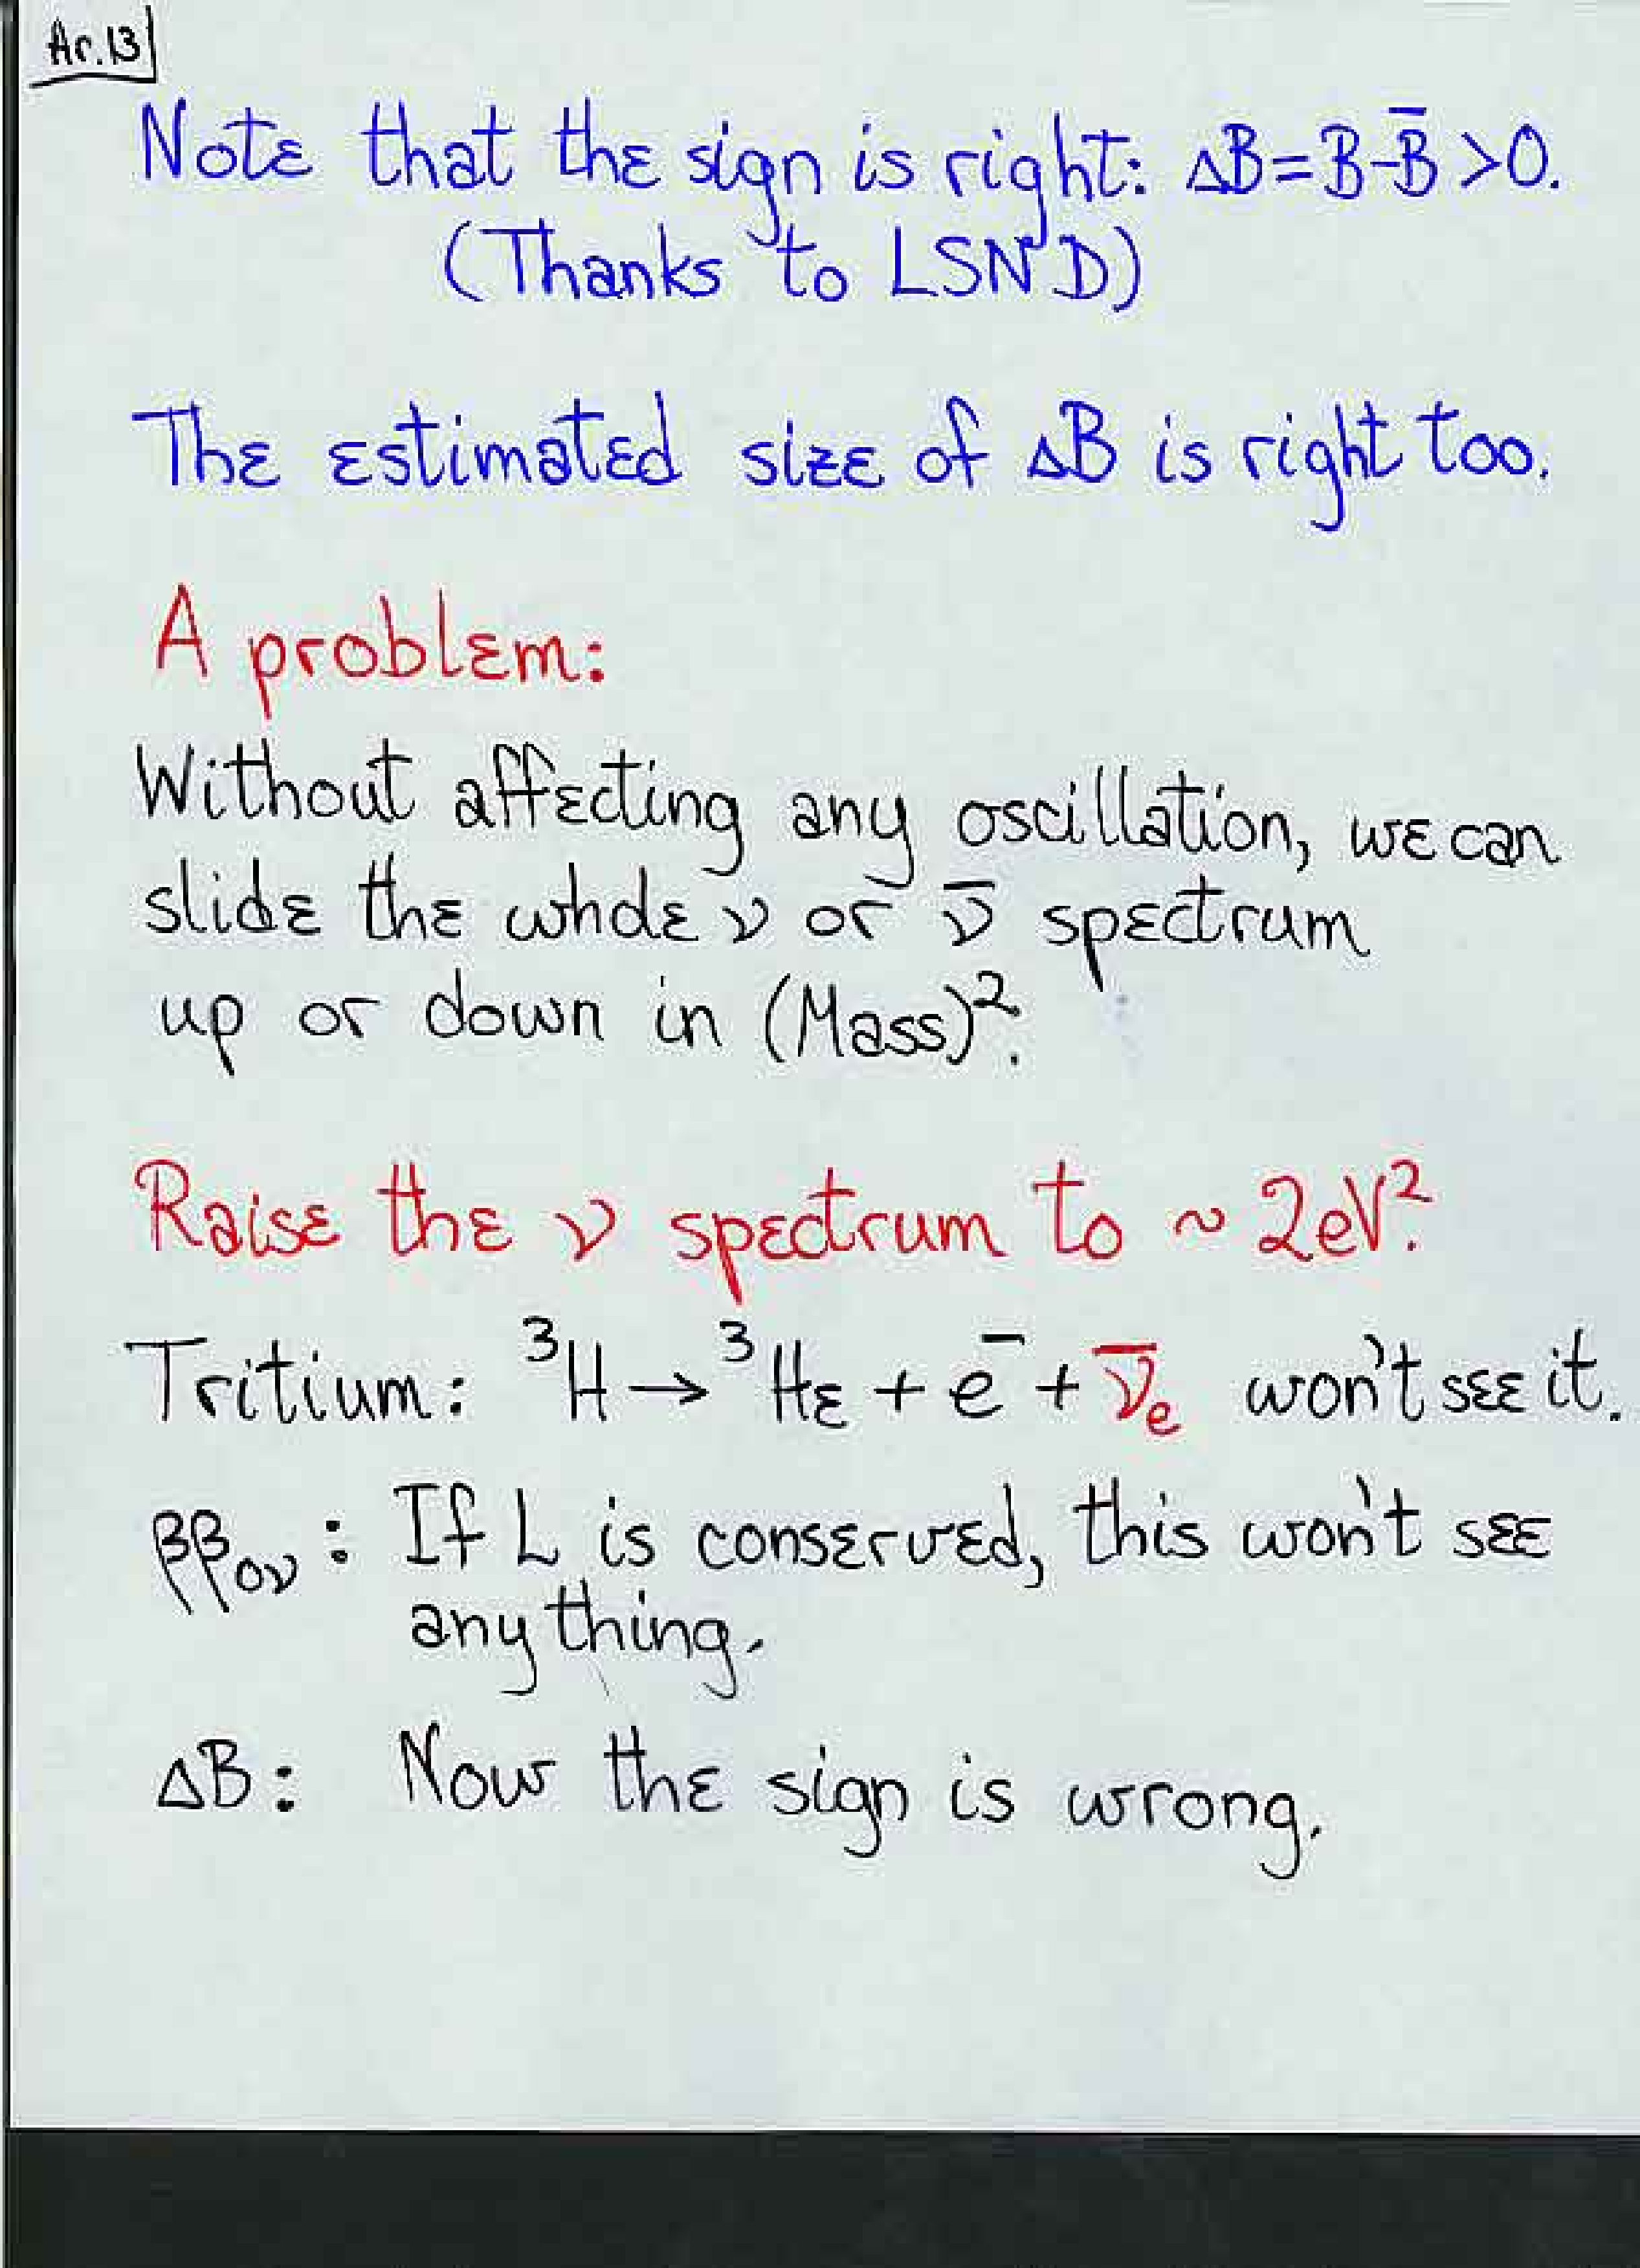 Ar.13
Note that the sign is right: ΔB=B-B̄>0.
(Thanks to LSND)
The estimated size of ΔB is right too.
A problem:
Without affecting any oscillation, we can
slide the whole ν or ν̄ spectrum
up or down in (Mass)².
Raise the ν spectrum to ~ 2eV².
Tritium: ³H → ³He + e⁻ + ν̄ₑ won't see it.
ββ₀ν : If L is conserved, this won't see
anything.
ΔB: Now the sign is wrong.